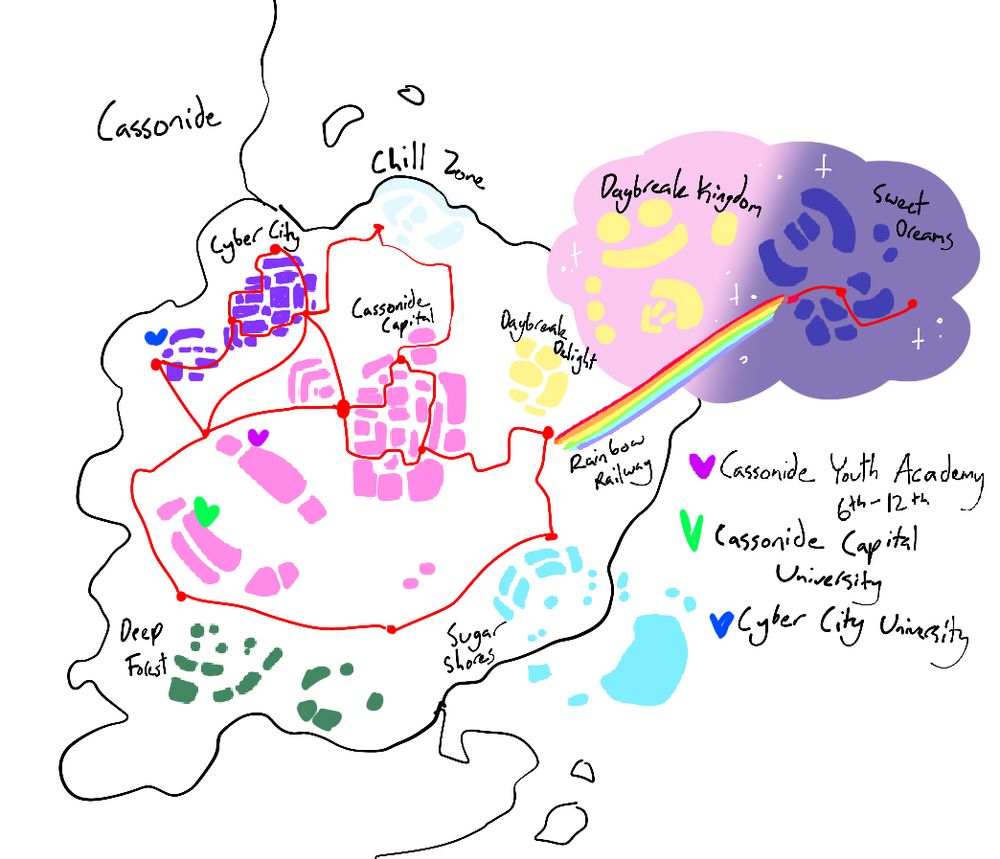 Cassonide
Chill Zone
Cyber City
Daybreak Kingdom
Sweet
Dreams
Cassonide
Capital
Daybreak
Delight
Rainbow
Railway
Cassonide Youth Academy
6th-12th
Cassonide Capital
University
Cyber City University
Deep
Forest
Sugar
Shores